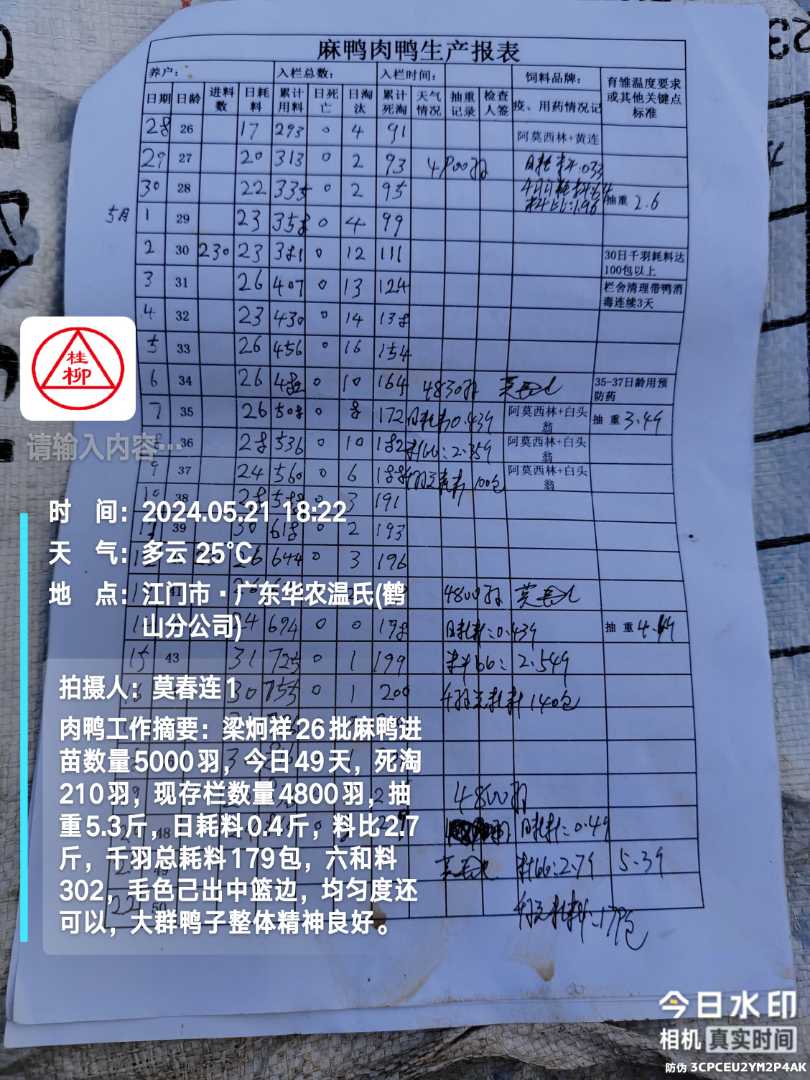 麻鸭肉鸭生产报表
养户： 入栏总数： 入栏时间： 饲料品牌： 育雏温度要求或其他关键点标准
日期 日龄 进料数 日耗料 累计用料 日死亡 日淘汰 累计死淘 天气情况 抽重记录 检查人签 疫、用药情况记
28 26 17 293 0 4 91 阿莫西林+黄连
29 27 20 313 0 2 93 4900羽
30 28 22 335 0 2 95 料比:1.96 抽重 2.6
5月 1 29 23 358 0 4 99
2 30 230 23 381 0 12 111 30日千羽耗料达100包以上
3 31 26 407 0 13 124 栏舍清理带鸭消毒连续3天
4 32 23 430 0 14 138
5 33 26 456 0 16 154
6 34 26 482 0 10 164 4830羽 35-37日龄用预防药
7 35 26 508 0 8 172 日耗料0.43斤 阿莫西林+白头翁 抽重 3.4斤
8 36 28 536 0 10 182 料比:2.35斤 阿莫西林+白头翁
9 37 24 560 0 6 188 100包 阿莫西林+白头翁
38 28 588 3 191
39 30 618 0 2 193
26 644 0 3 196
4800羽
24 694 0 0 198 日耗料:0.43斤 抽重
15 43 31 725 0 1 199 料比: 2.54斤
30 755 0 1 200 140包
4800羽
48 日耗料:0.4斤
料比:2.7斤 5.3斤
22 50 179包
桂柳
请输入内容…
时 间：2024.05.21 18:22
天 气：多云 25℃
地 点：江门市·广东华农温氏(鹤
山分公司)
拍摄人：莫春连1
肉鸭工作摘要：梁炯祥26批麻鸭进
苗数量5000羽，今日49天，死淘
210羽，现存栏数量4800羽，抽
重5.3斤，日耗料0.4斤，料比2.7
斤，千羽总耗料179包，六和料
302，毛色已出中篮边，均匀度还
可以，大群鸭子整体精神良好。
今日水印
相机 真实时间
防伪 3CPCEU2YM2P4AK